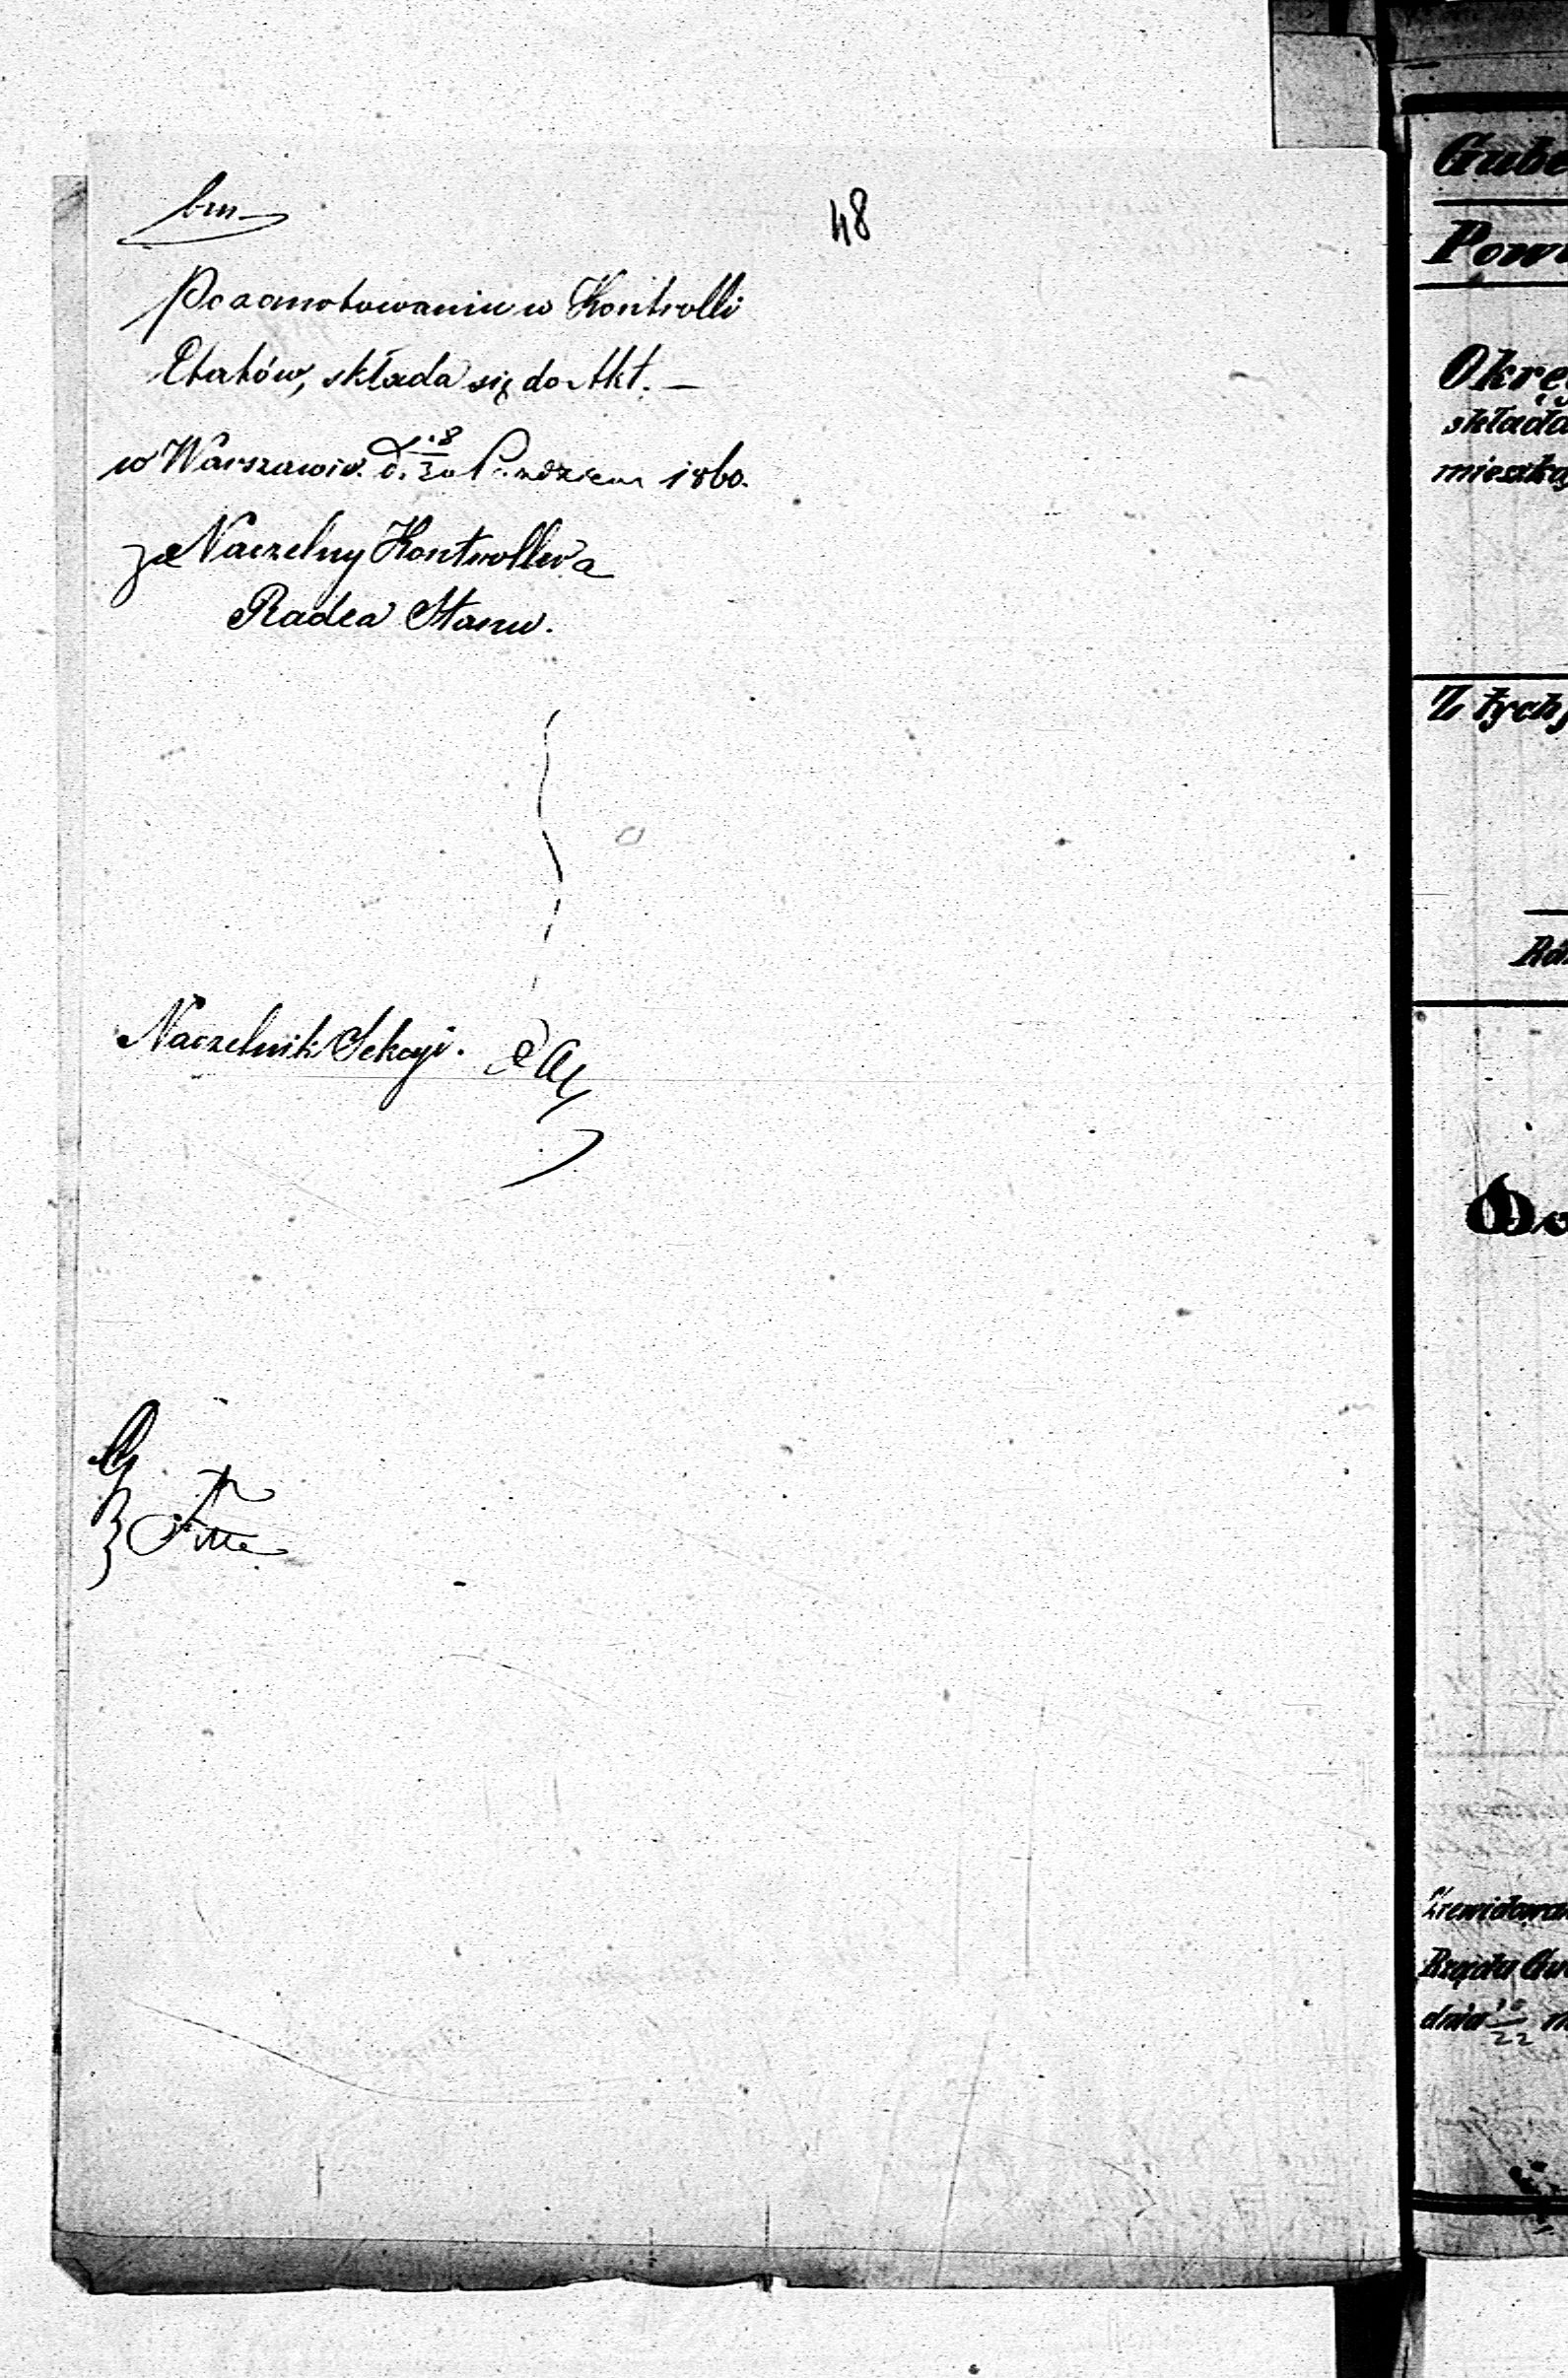 48
Po zanotowaniu w Kontrolli
Etatów, składa się do Akt. —
w Warszawie d. 18/30 Paździer 1860.
za Naczelny Kontroller a
Radca Stanu.
Naczelnik Sekcyi.
Gube
Powi
Okrę
składa
mieszka
Z tych,
Do
Zrewidowa
Rządu Gu
dnia 10/22